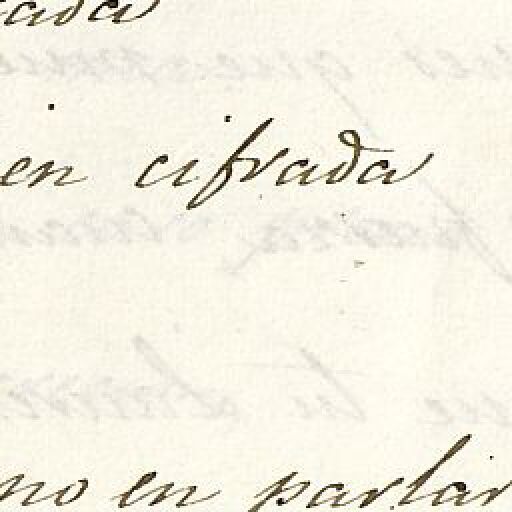 ada
en cifrada
no en parlar